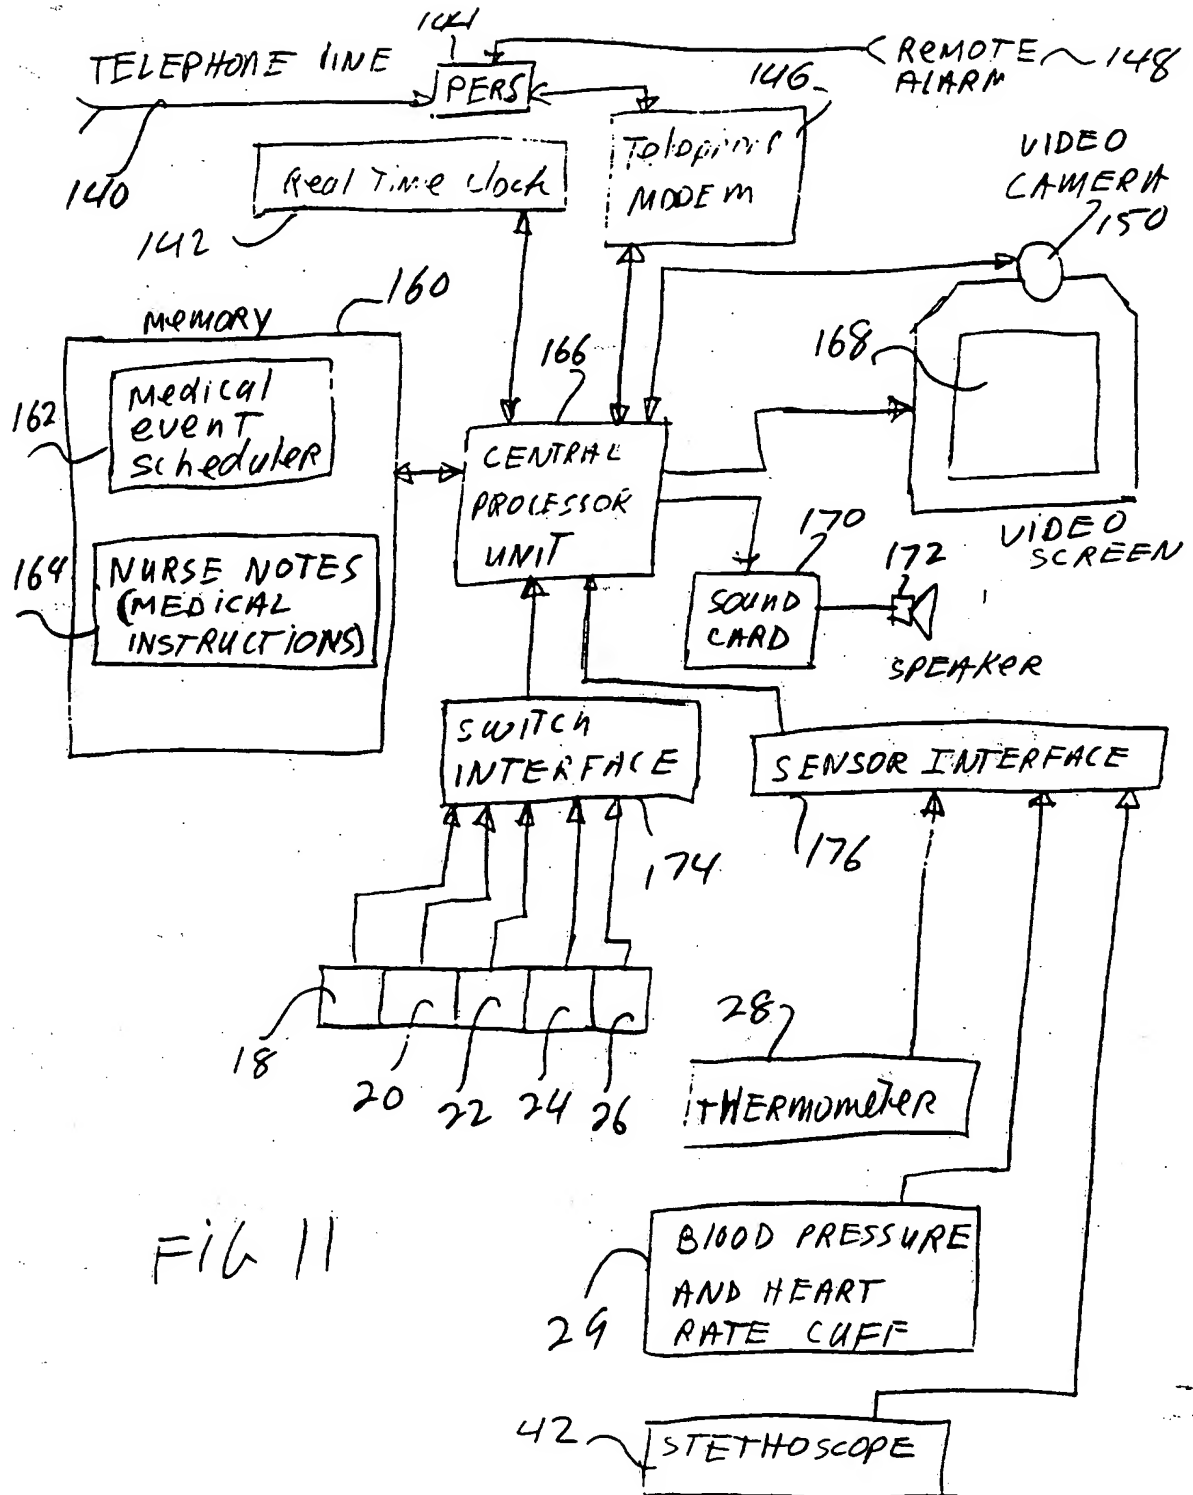 144
TELEPHONE LINE
PERS
REMOTE
ALARM
148
146
140
Real Time Clock
MODEM
VIDEO
CAMERA
150
142
160
memory
166
168
162
medical
event
scheduler
CENTRAL
PROCESSOR
UNIT
170
VIDEO
SCREEN
172
164
NURSE NOTES
(MEDICAL
INSTRUCTIONS)
SOUND
CARD
SPEAKER
SWITCH
INTERFACE
SENSOR INTERFACE
174
176
18
20
22
24
26
28
THERMOMETER
FIG 11
29
BLOOD PRESSURE
AND HEART
RATE CUFF
42
STETHOSCOPE